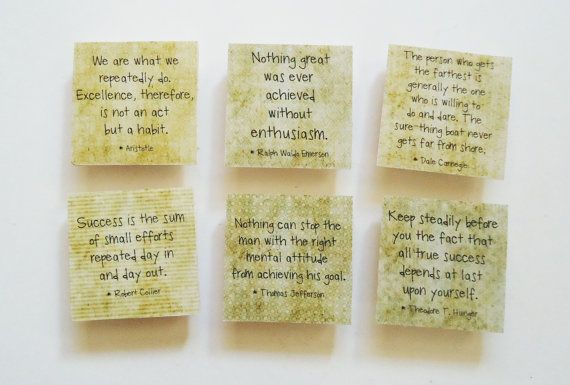 We are what we
repeatedly do.
Excellence, therefore,
is not an act
but a habit.
* Aristotle
Nothing great
was ever
achieved
without
enthusiasm.
* Ralph Waldo Emerson
The person who gets
the farthest is
generally the one
who is willing to
do and dare. The
sure-thing boat never
gets far from shore.
* Dale Carnegie
Success is the sum
of small efforts
repeated day in
and day out.
* Robert Collier
Nothing can stop the
man with the right
mental attitude
from achieving his goal.
* Thomas Jefferson
Keep steadily before
you the fact that
all true success
depends at last
upon yourself.
* Theodore T. Hunger